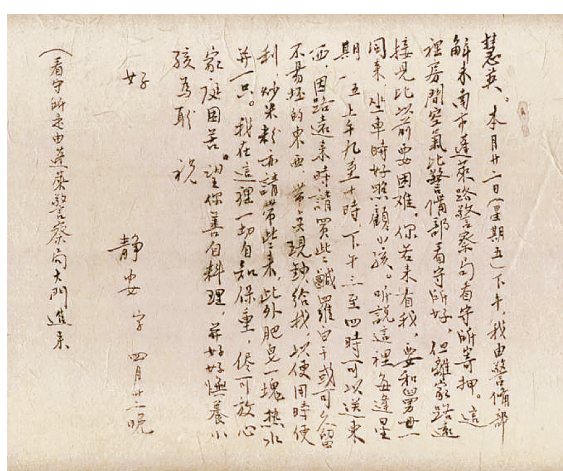 慧英。本月廿二日(星期五)下午,我由警備部
解來南市蓬萊路警察局看守所寄押。這
裡房間空氣比警備部看守所好,但離家路遠
接見比以前要困難。你若來看我,要和舅母
同來,坐車時好照顧小孩。听說這裡每逢星
期一、五上午九至十時下午三至四時可以送東
西,因路遠來時請買些鹹羅白干或可久留
不易壞的東西,帶與現鈔給我,以便用時便
利,炒米粉亦請帶些來此外肥皂一塊熱水
并一只。我在這裡一切自知保重,尽可放心
家庭困苦。望你善自料理,并好好撫養小
孩為盼 祝
好
靜安字 四月廿二晚
(看守所是由蓬萊警察局大門進來